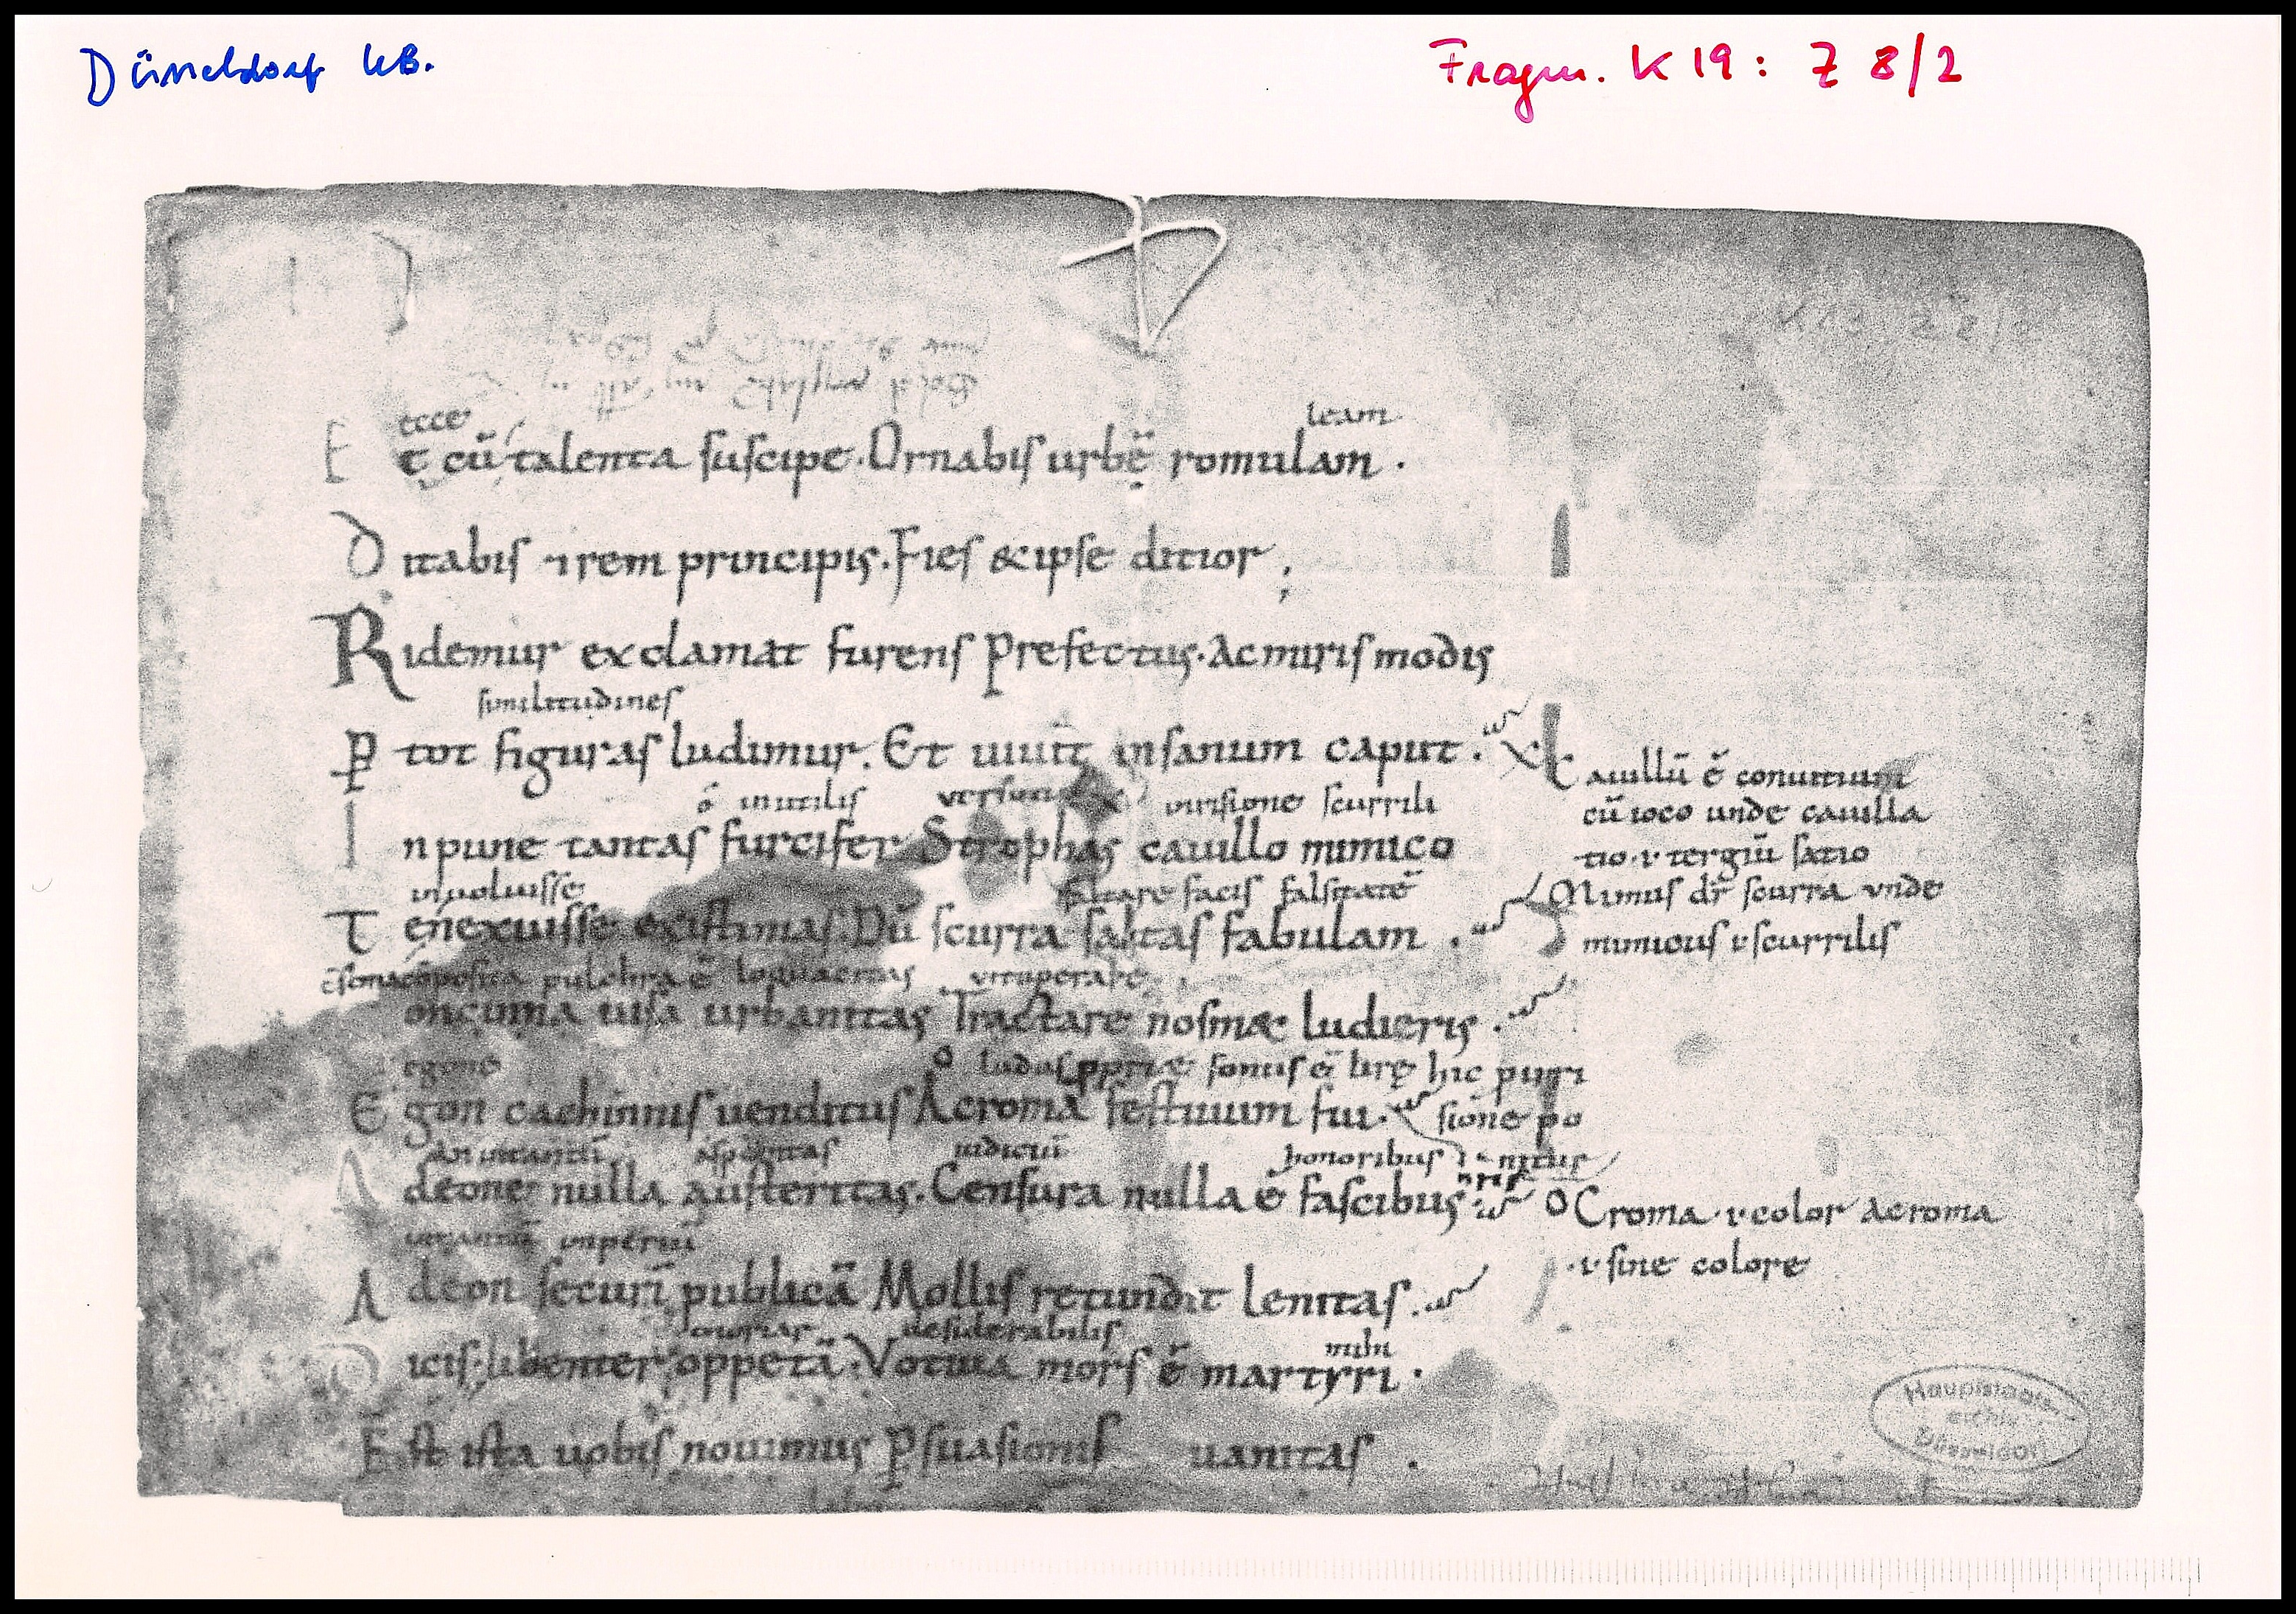 Düsseldorf UB.
Fragm. K 19: Z 8/2
ecce
leam
Et cū talenta suscipe. Ornabis urbē romulam.
Ditabis ⁊ rem principis. Fies & ipse ditior;
Ridemur exclamat furens prefectus. Ac miris modis
similitudines
P tot figuras ludimur. Et uiuit insanum caput.
ó inutilis
irrisione scurrili
Inpune tantas furcifer Strophas cauillo mimico
inuoluisse
saltare facis falsitatē
Te nexuisse existimas. Dū scurra saltas fabulam.
pulchra ē loquacitas uituperare
oncinna uisa urbanitas Tractare nosmæ ludicris.
egone
o ludus ppriæ sonus ē lirę hic pi
Egon cachinnis uenditus Acroma festiuum fui.
sione po
asperitas iudiciū honoribus
nitur
Adeone nulla austeritas. Censura nulla ē fascibus
imperiū
Adeon securī publicā Mollis retundit lenitas.
desiderabilis
mihi
icis libenter oppetā. Votiua mors ē martyri.
Est ista uobis nouimus psuasionis uanitas.
Cauillū ē conuitium
cū ioco unde cauilla
tio. ł tergiū satio
Mimus dr̄ scurra vnde
mimicus ł scurrilis
o Croma. ł color acroma
. ł sine colore
Hauptstaats-
archiv
Düsseldorf